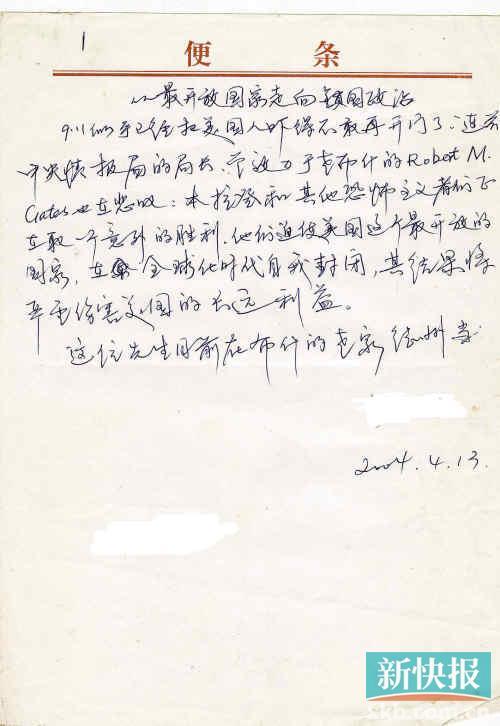 1
便 条
从最开放国家走向锁国政治
9.11似乎已经把美国人吓得不敢再开门了。连前
中央情报局的局长、曾效力于老布什的Robert M.
Gates也在悲叹：本·拉登和其他恐怖主义者们正
在取一个意外的胜利，他们迫使美国这个最开放的
国家，在全球化时代自我封闭，其结果将
严重伤害美国的长远利益。
这位先生目前在布什的老家德州当
2004.4.13
新快报
xkb.com.cn